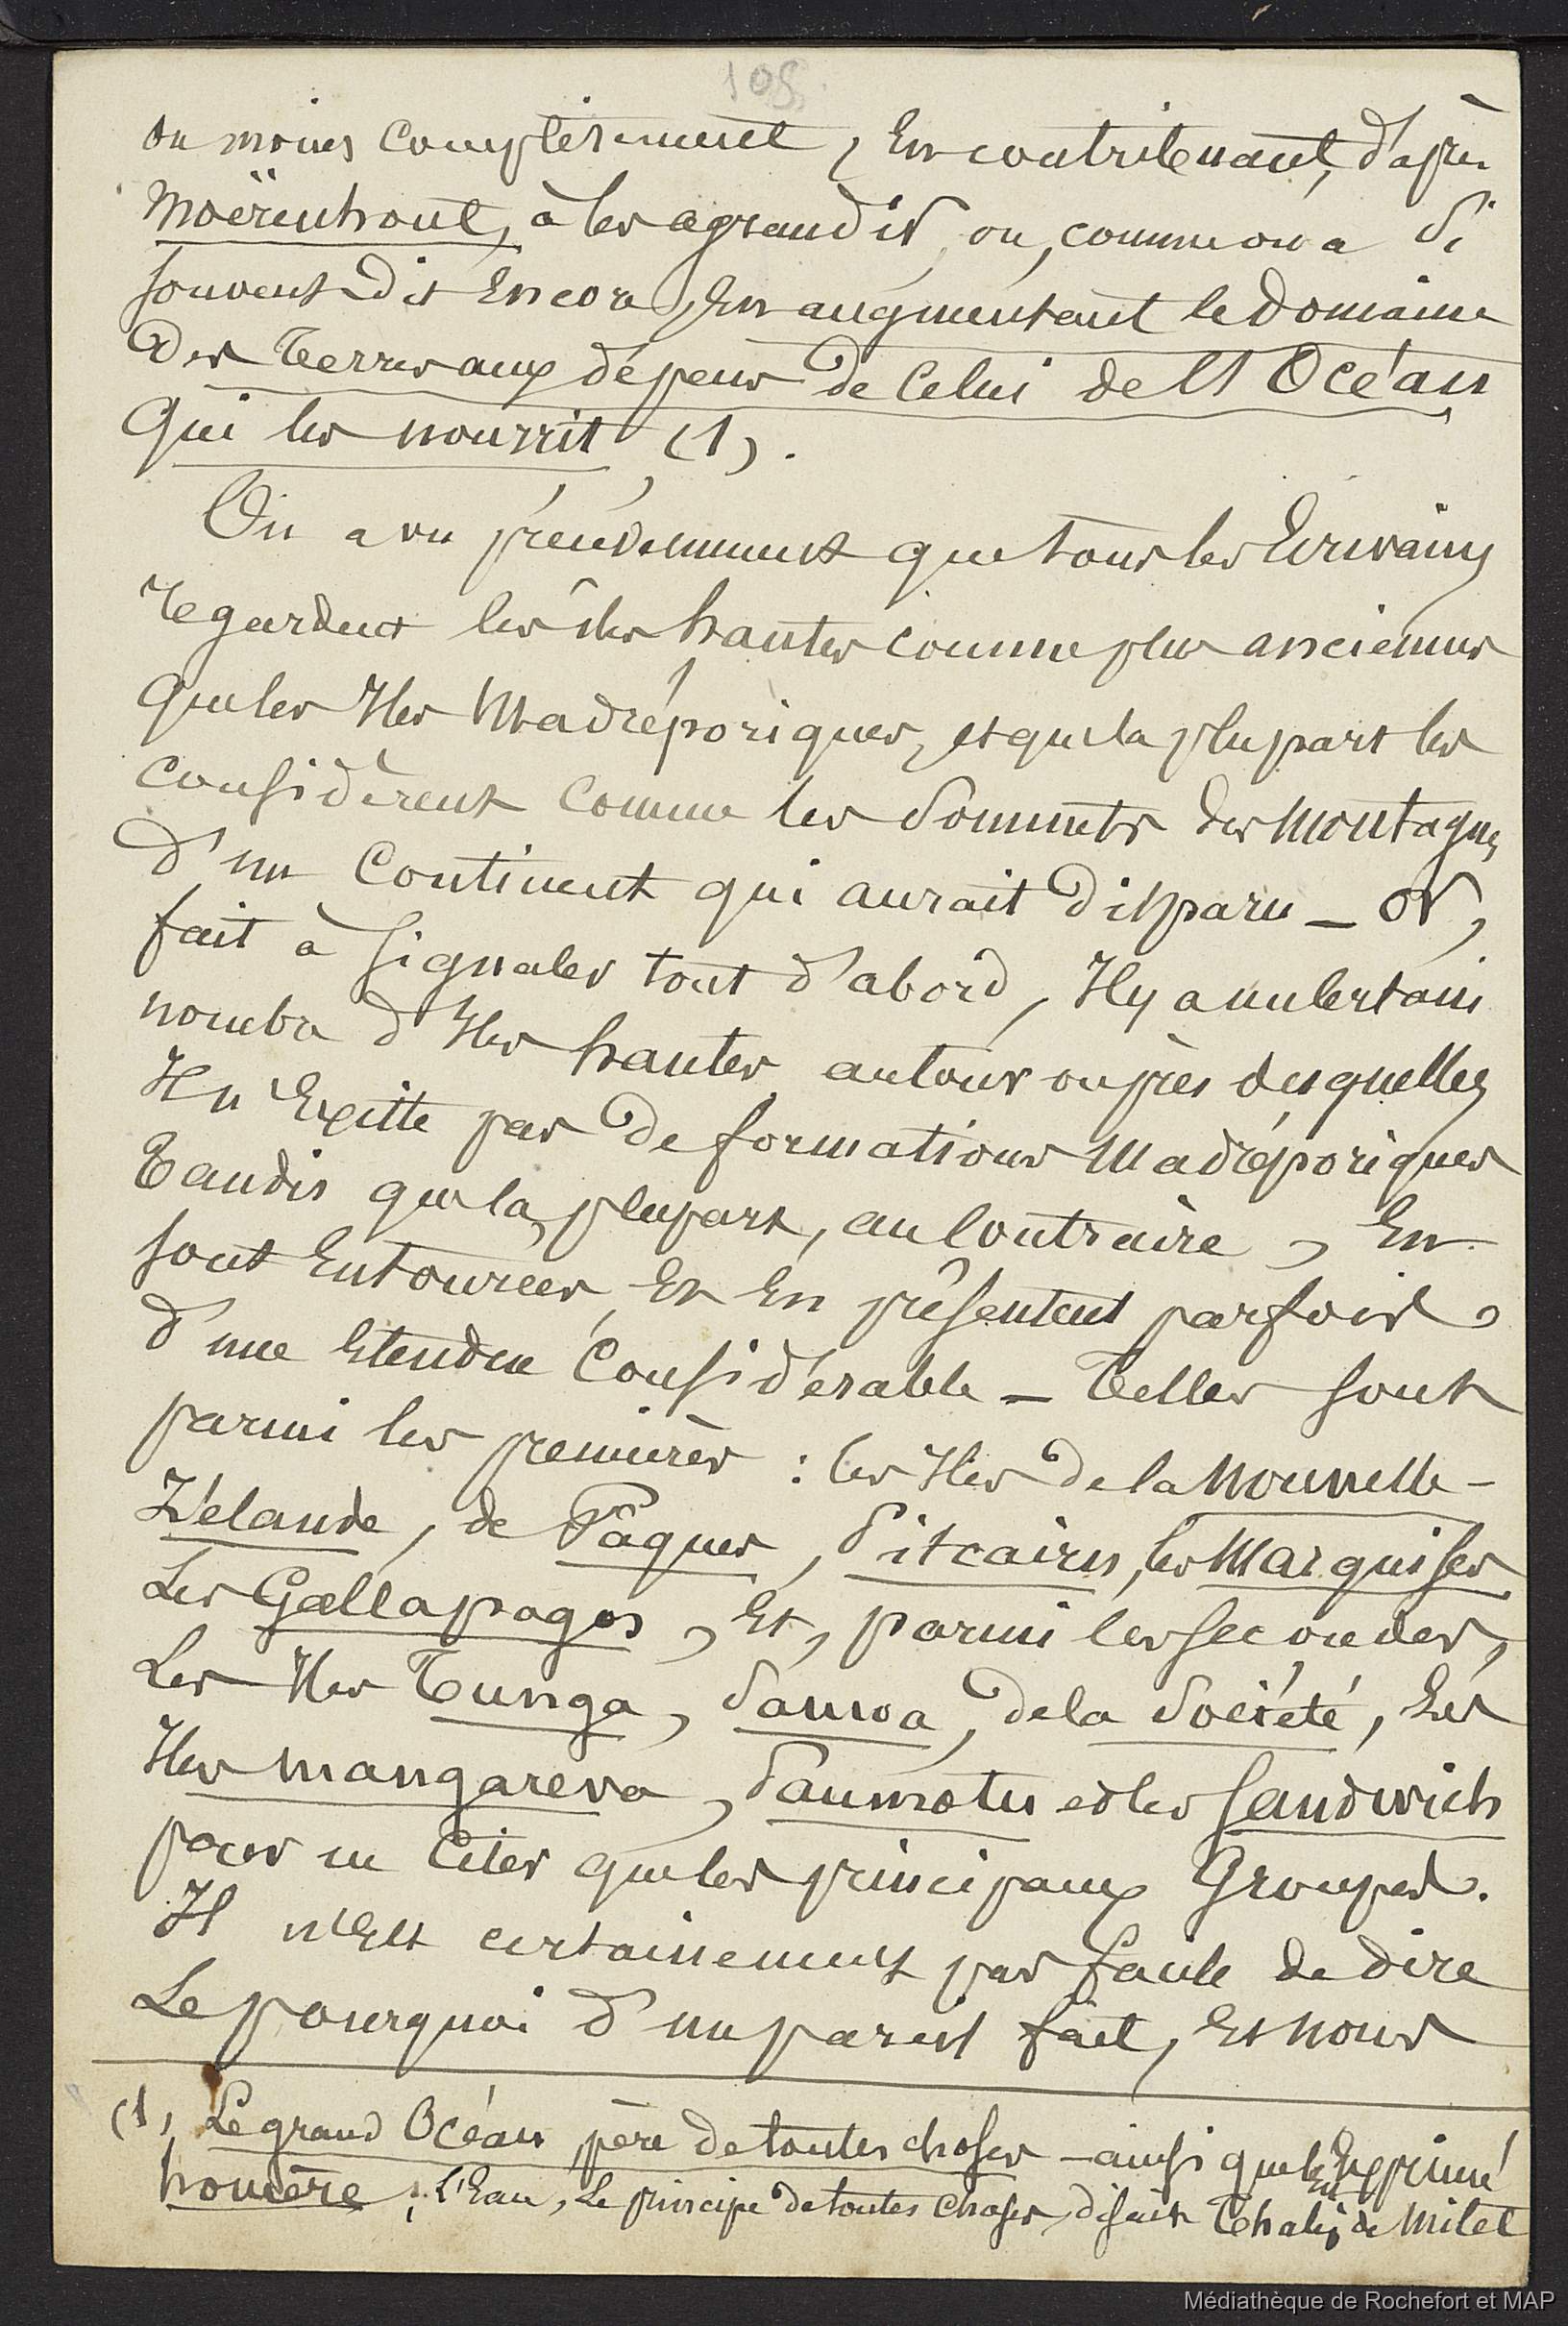 108
ou moins complètement, En contribuant, d'après
Moërenhout, à les agrandir, ou, comme on a si
souvent dit Encore, En augmentant le domaine
des Terres aux dépens de Celui de l'Océan
qui les nourrit (1).
On a vu précédemment que tous les Ecrivains
regardent les îles hautes comme plus anciennes
que les Iles Madréporiques, et que la plupart les
considèrent comme les sommets des Montagnes
d'un Continent qui aurait disparu — Or,
fait à signaler tout d'abord, Il y a un certain
nombre d'Iles hautes autour ou près desquelles
Il n'Existe pas de formations Madréporiques
Tandis que la plupart, au Contraire, En
sont Entourées Et En présentent parfois
d'une Etendue Considérable — Telles sont
parmi les premières : les Iles de la Nouvelle-
Zélande, de Pâques, Pitcairn, les Marquises
Les Gallapagos, Et, parmi les secondes,
Les Iles Tunga, Samoa, de la Société, Les
Iles Mangareva, Paumotu et les Sandwich
pour ne Citer que les principaux Groupes.
Il n'Est certainement pas facile de dire
Le pourquoi d'un pareil fait, Et nous
(1) Le grand Océan père de toutes choses — ainsi que l'Exprimé
homère ; l'Eau, Le principe de toutes Choses, disait Thalès de Milet
Médiathèque de Rochefort et MAP